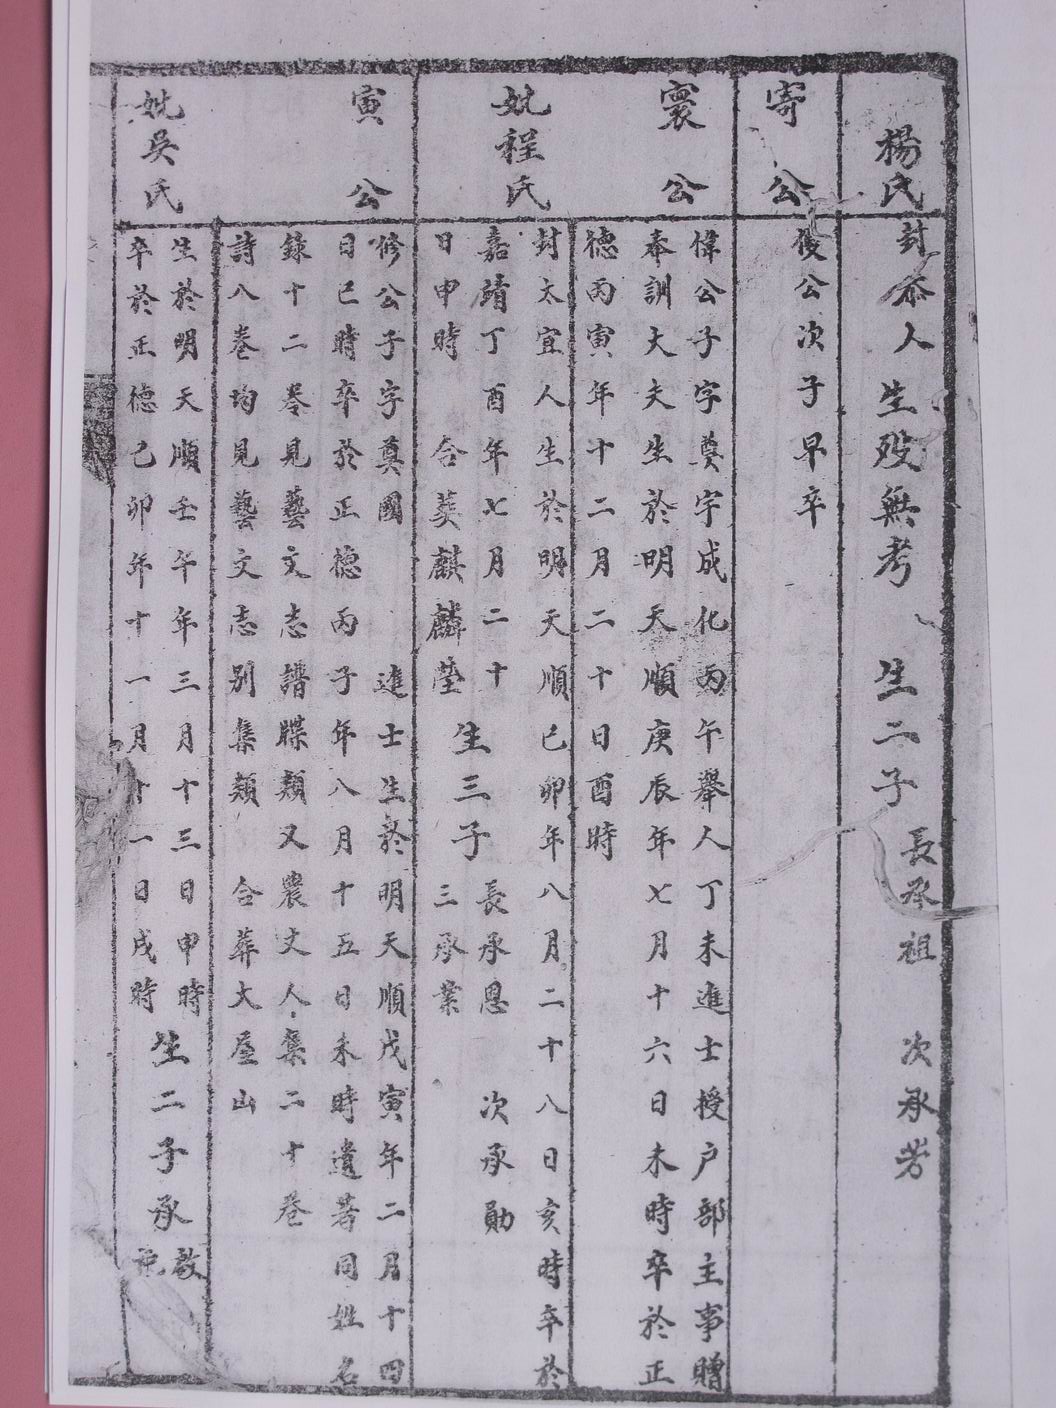 楊氏
封恭人 生歿無考 生二子 長承祖 次承芳
寄公
俊公次子早卒
寰公
偉公子字奠宇成化丙午舉人丁未進士授户部主事贈
奉訓大夫生於明天順庚辰年七月十六日未時卒於正
德丙寅年十二月二十日酉時
妣程氏
封太宜人生於明天順己卯年八月二十八日亥時卒於
嘉靖丁酉年七月二十
日申時 合葬麒麟塋 生三子 長承恩 次承勛
三承業
寅公
修公子字奠國 進士生於明天順戊寅年二月十四
日巳時卒於正德丙子年八月十五日未時遺著同姓名
錄十二卷見藝文志譜牒類又農丈人集二十卷
詩八卷均見藝文志別集類 合葬大屋山
妣吳氏
生於明天順壬午年三月十三日申時
卒於正德己卯年十一月十一日戌時 生二子承敎